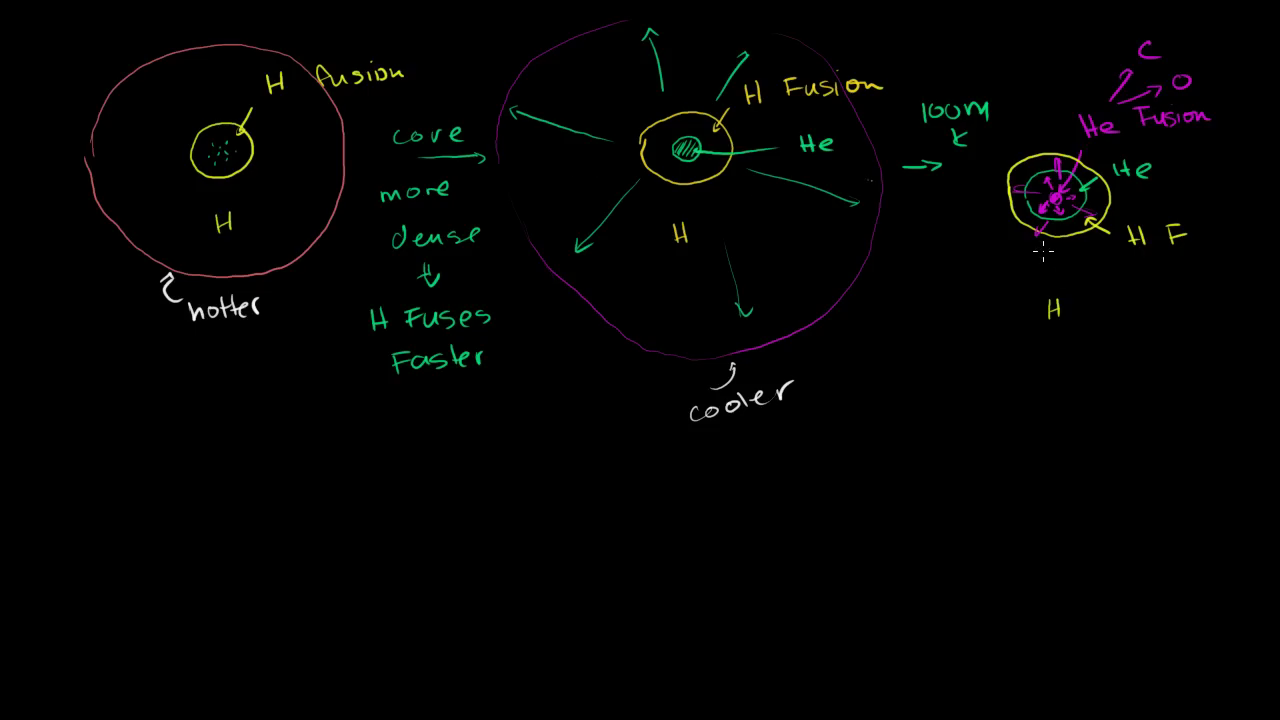 H fusion
H
hotter
core
more
dense
H Fuses
Faster
H Fusion
He
H
cooler
100M
K
C
O
He Fusion
He
H F
H